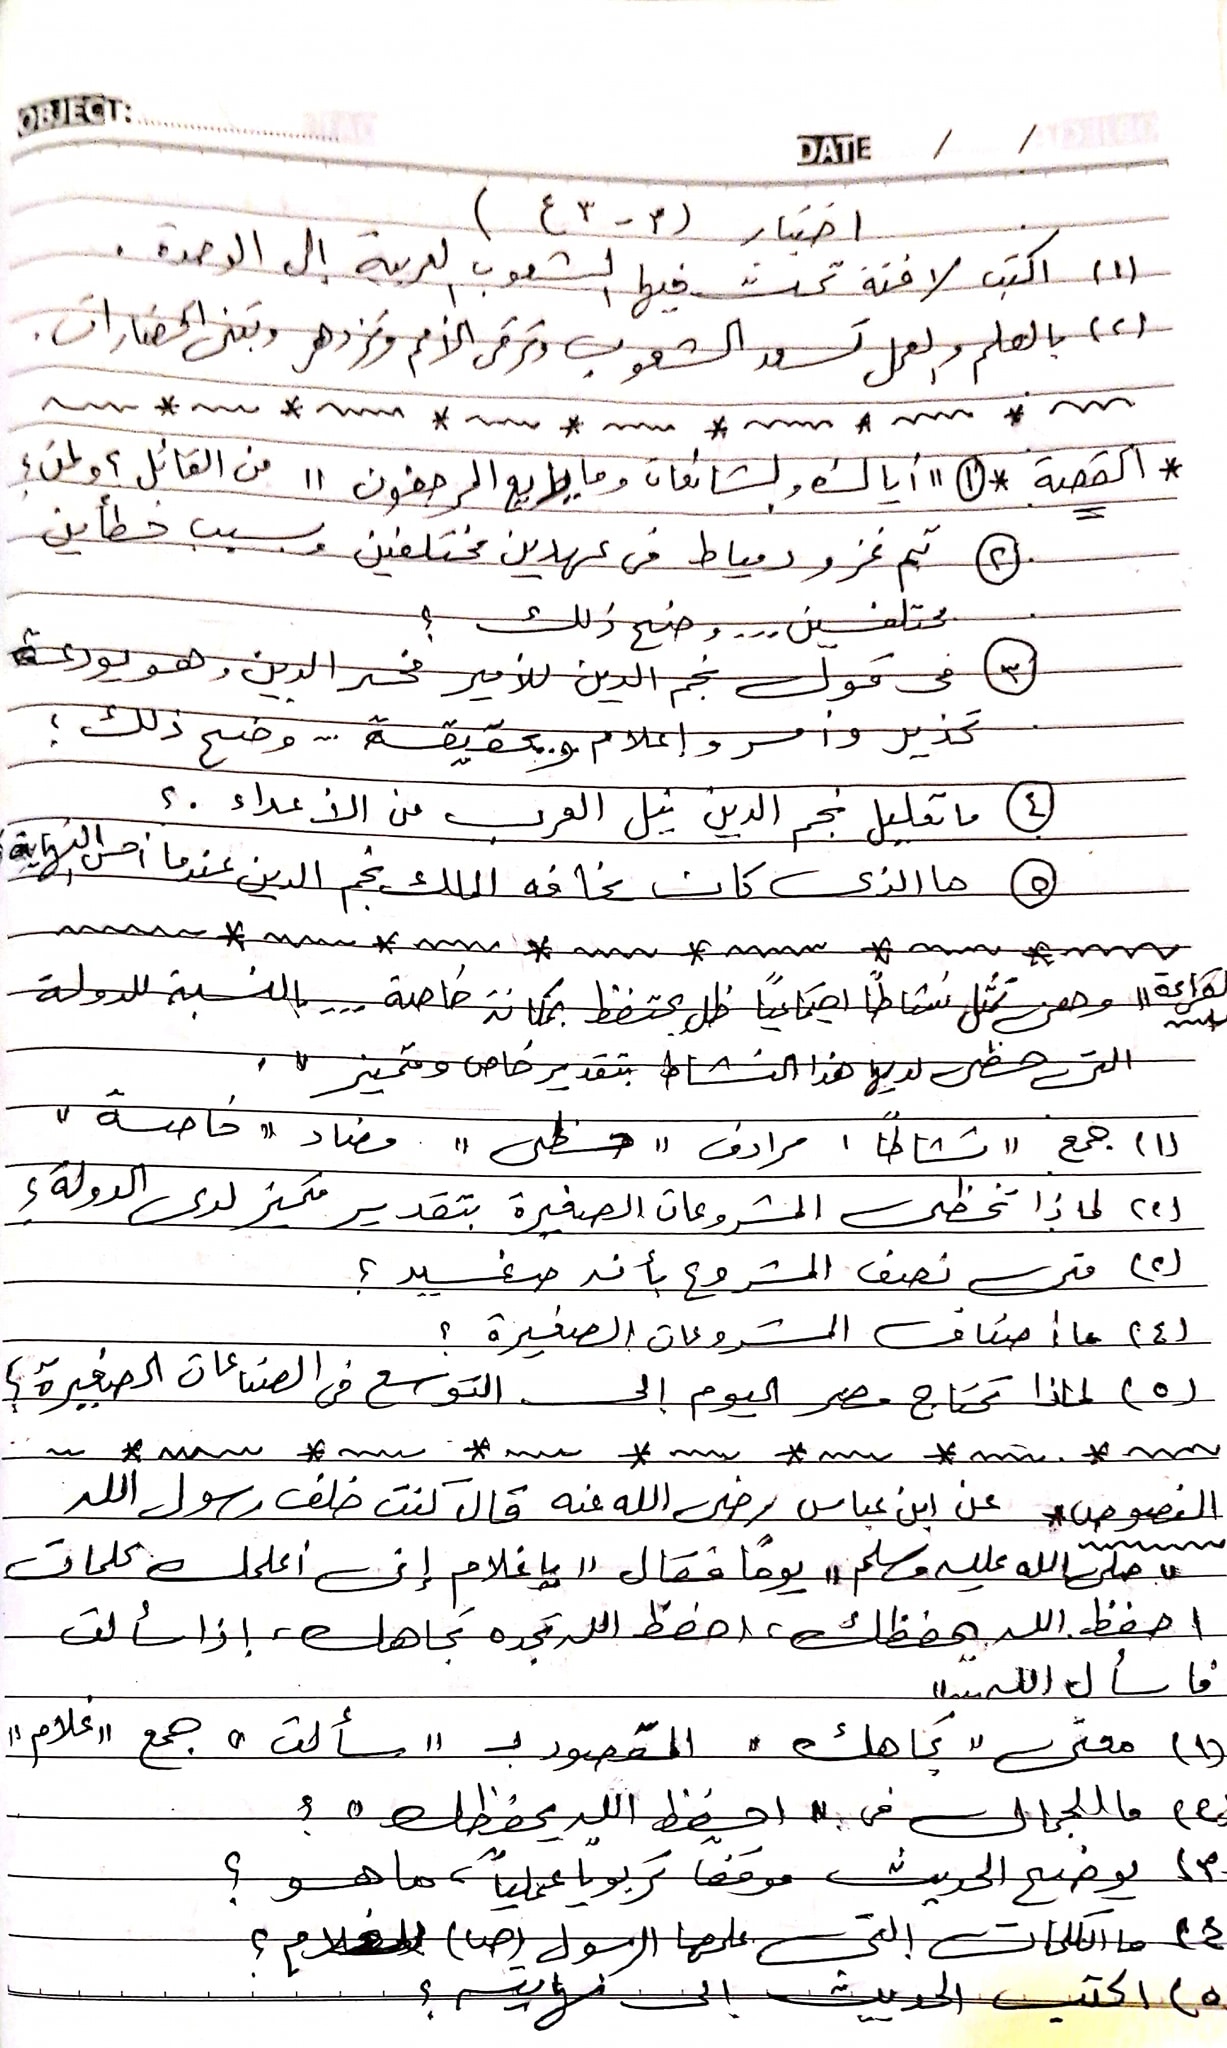 OBJECT:
DATE / /
اختبار (٣-٣ع)
(١) اكتب لافتة تحث فيها الشعوب العربية إلى الوحدة .
(٢) بالعلم والعمل تسعد الشعوب وترقى الأمم وتزدهر وتبنى الحضارات .
* القصة * ① "اياك والشائعات وما يذيع المرجفون" من القائل ؟ ولمن ؟
② تم غزو دمياط فى عهدين مختلفين وبسبب خطأين
مختلفين ... وضح ذلك ؟
③ فى قول نجم الدين للأمير فخر الدين وهو يودعه
تحذير وأمر وإعلام وبحقيقة .. وضح ذلك ؟
④ ما تعليل نجم الدين نيل العرب من الأعداء . ؟
⑤ ما الذى كان يخافه الملك نجم الدين عندما أحس النهاية
القراءة " وهى تمثل نشاطًا اجتماعيًا ظل يحتفظ بمكانة خاصة ... بالنسبة للدولة
التى حظى لديها هذا النشاط بتقدير خاص ومتميز " .
(١) جمع " نشاطًا ، مرادف " حظى " مضاد " خاصة "
(٢) لماذا تحظى المشروعات الصغيرة بتقدير متميز لدى الدولة ؟
(٣) متى نصف المشروع بأنه صغير ؟
(٤) ما أصناف المشروعات الصغيرة ؟
(٥) لماذا تحتاج مصر اليوم إلى التوسع فى الصناعات الصغيرة ؟
النصوص * عن ابن عباس رضى الله عنه قال كنت خلف رسول الله
" صلى الله عليه وسلم " يومًا فقال " يا غلام إنى أعلمك كلمات
احفظ الله يحفظك ، احفظ الله تجده تجاهك ، إذا سألت
فاسأل الله ... "
(١) معنى " تجاهك " المقصود بـ " سألت " جمع " غلام "
(٢) ما الجمال فى " احفظ الله يحفظك " ؟
(٣) يوضح الحديث موقفًا تربويًا عمليًا ، ما هو ؟
(٤) ما الكلمات التى علمها الرسول (ص) للغلام ؟
(٥) اكتب الحديث إلى نهايته ؟